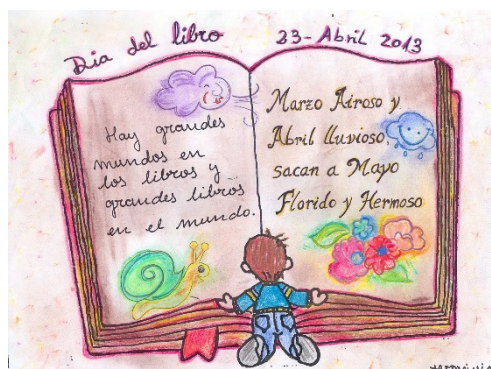 Dia del libro
23-Abril 2013
Hay grandes
mundos en
los libros y
grandes libros
en el mundo.
Marzo Airoso y
Abril lluvioso,
sacan a Mayo
Florido y Hermoso